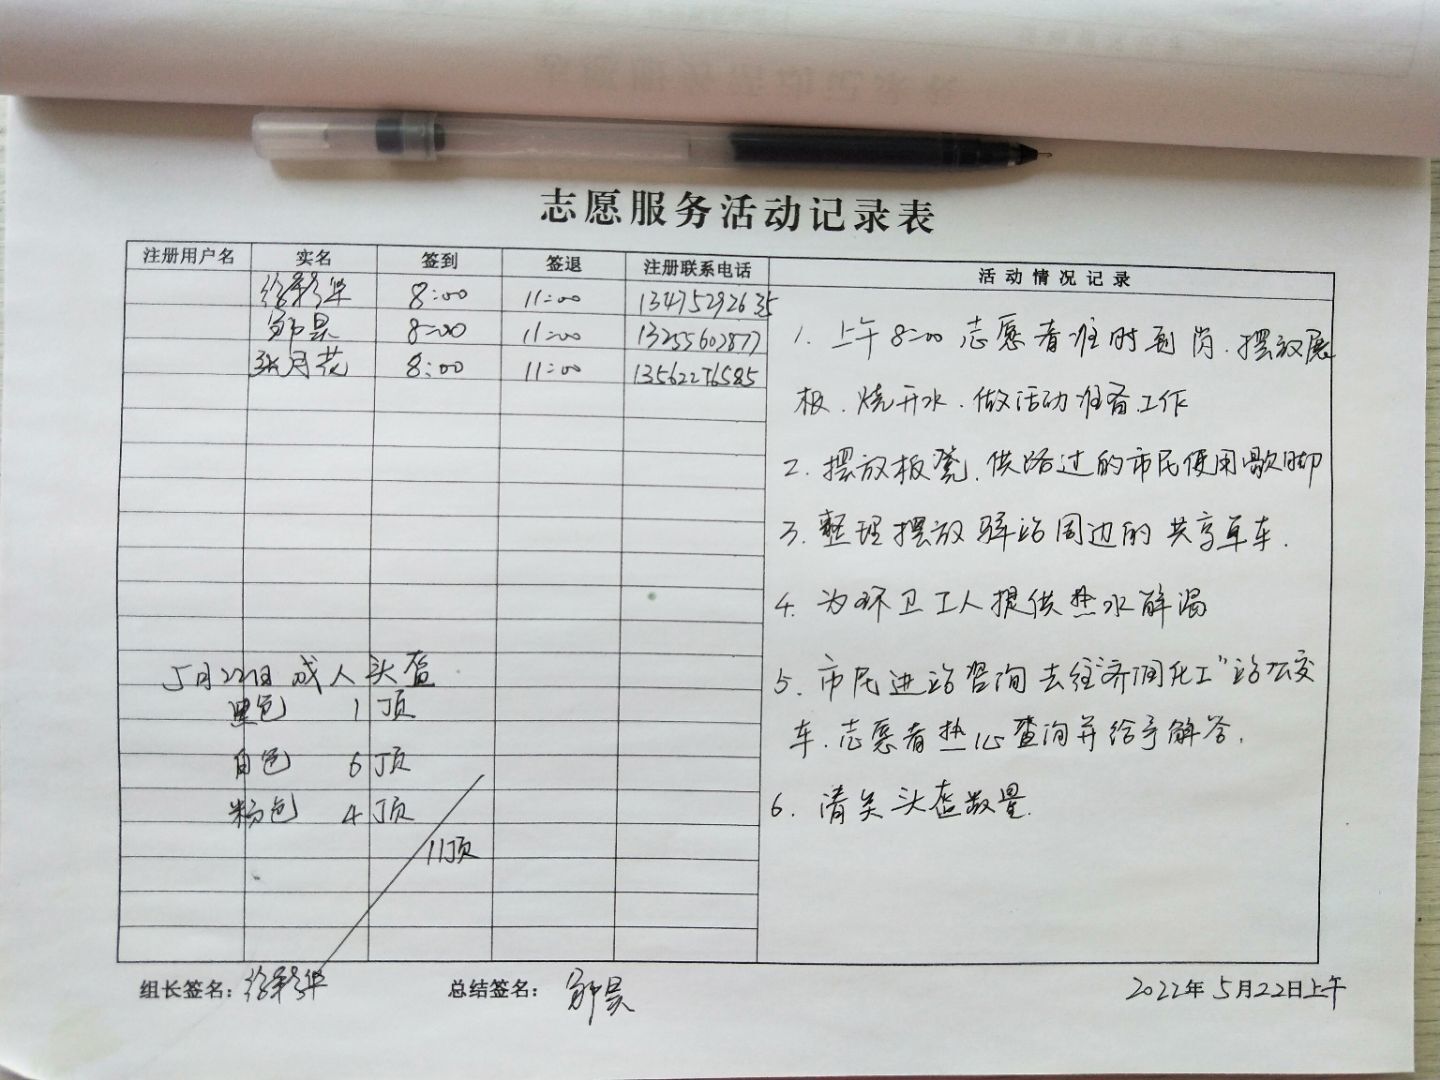 志愿服务活动记录表
注册用户名 实名 签到 签退 注册联系电话 活动情况记录
徐彩华 8:00 11:00 13475292635
邹昊 8:00 11:00 13255602877
张月花 8:00 11:00 13562276585
1. 上午8:00志愿者准时到岗.摆放展
板.烧开水.做活动准备工作
2. 摆放板凳.供路过的市民使用歇脚
3. 整理摆放驿站周边的共享单车.
4. 为环卫工人提供热水解渴
5. 市民进站咨询去往“济阳化工”站公交
车.志愿者热心查询并给予解答.
6. 清关头盔数量.
5月22日 成人头盔
黑色 1顶
白色 6顶
粉色 4顶
11顶
组长签名：徐彩华 总结签名：邹昊 2022年5月22日上午